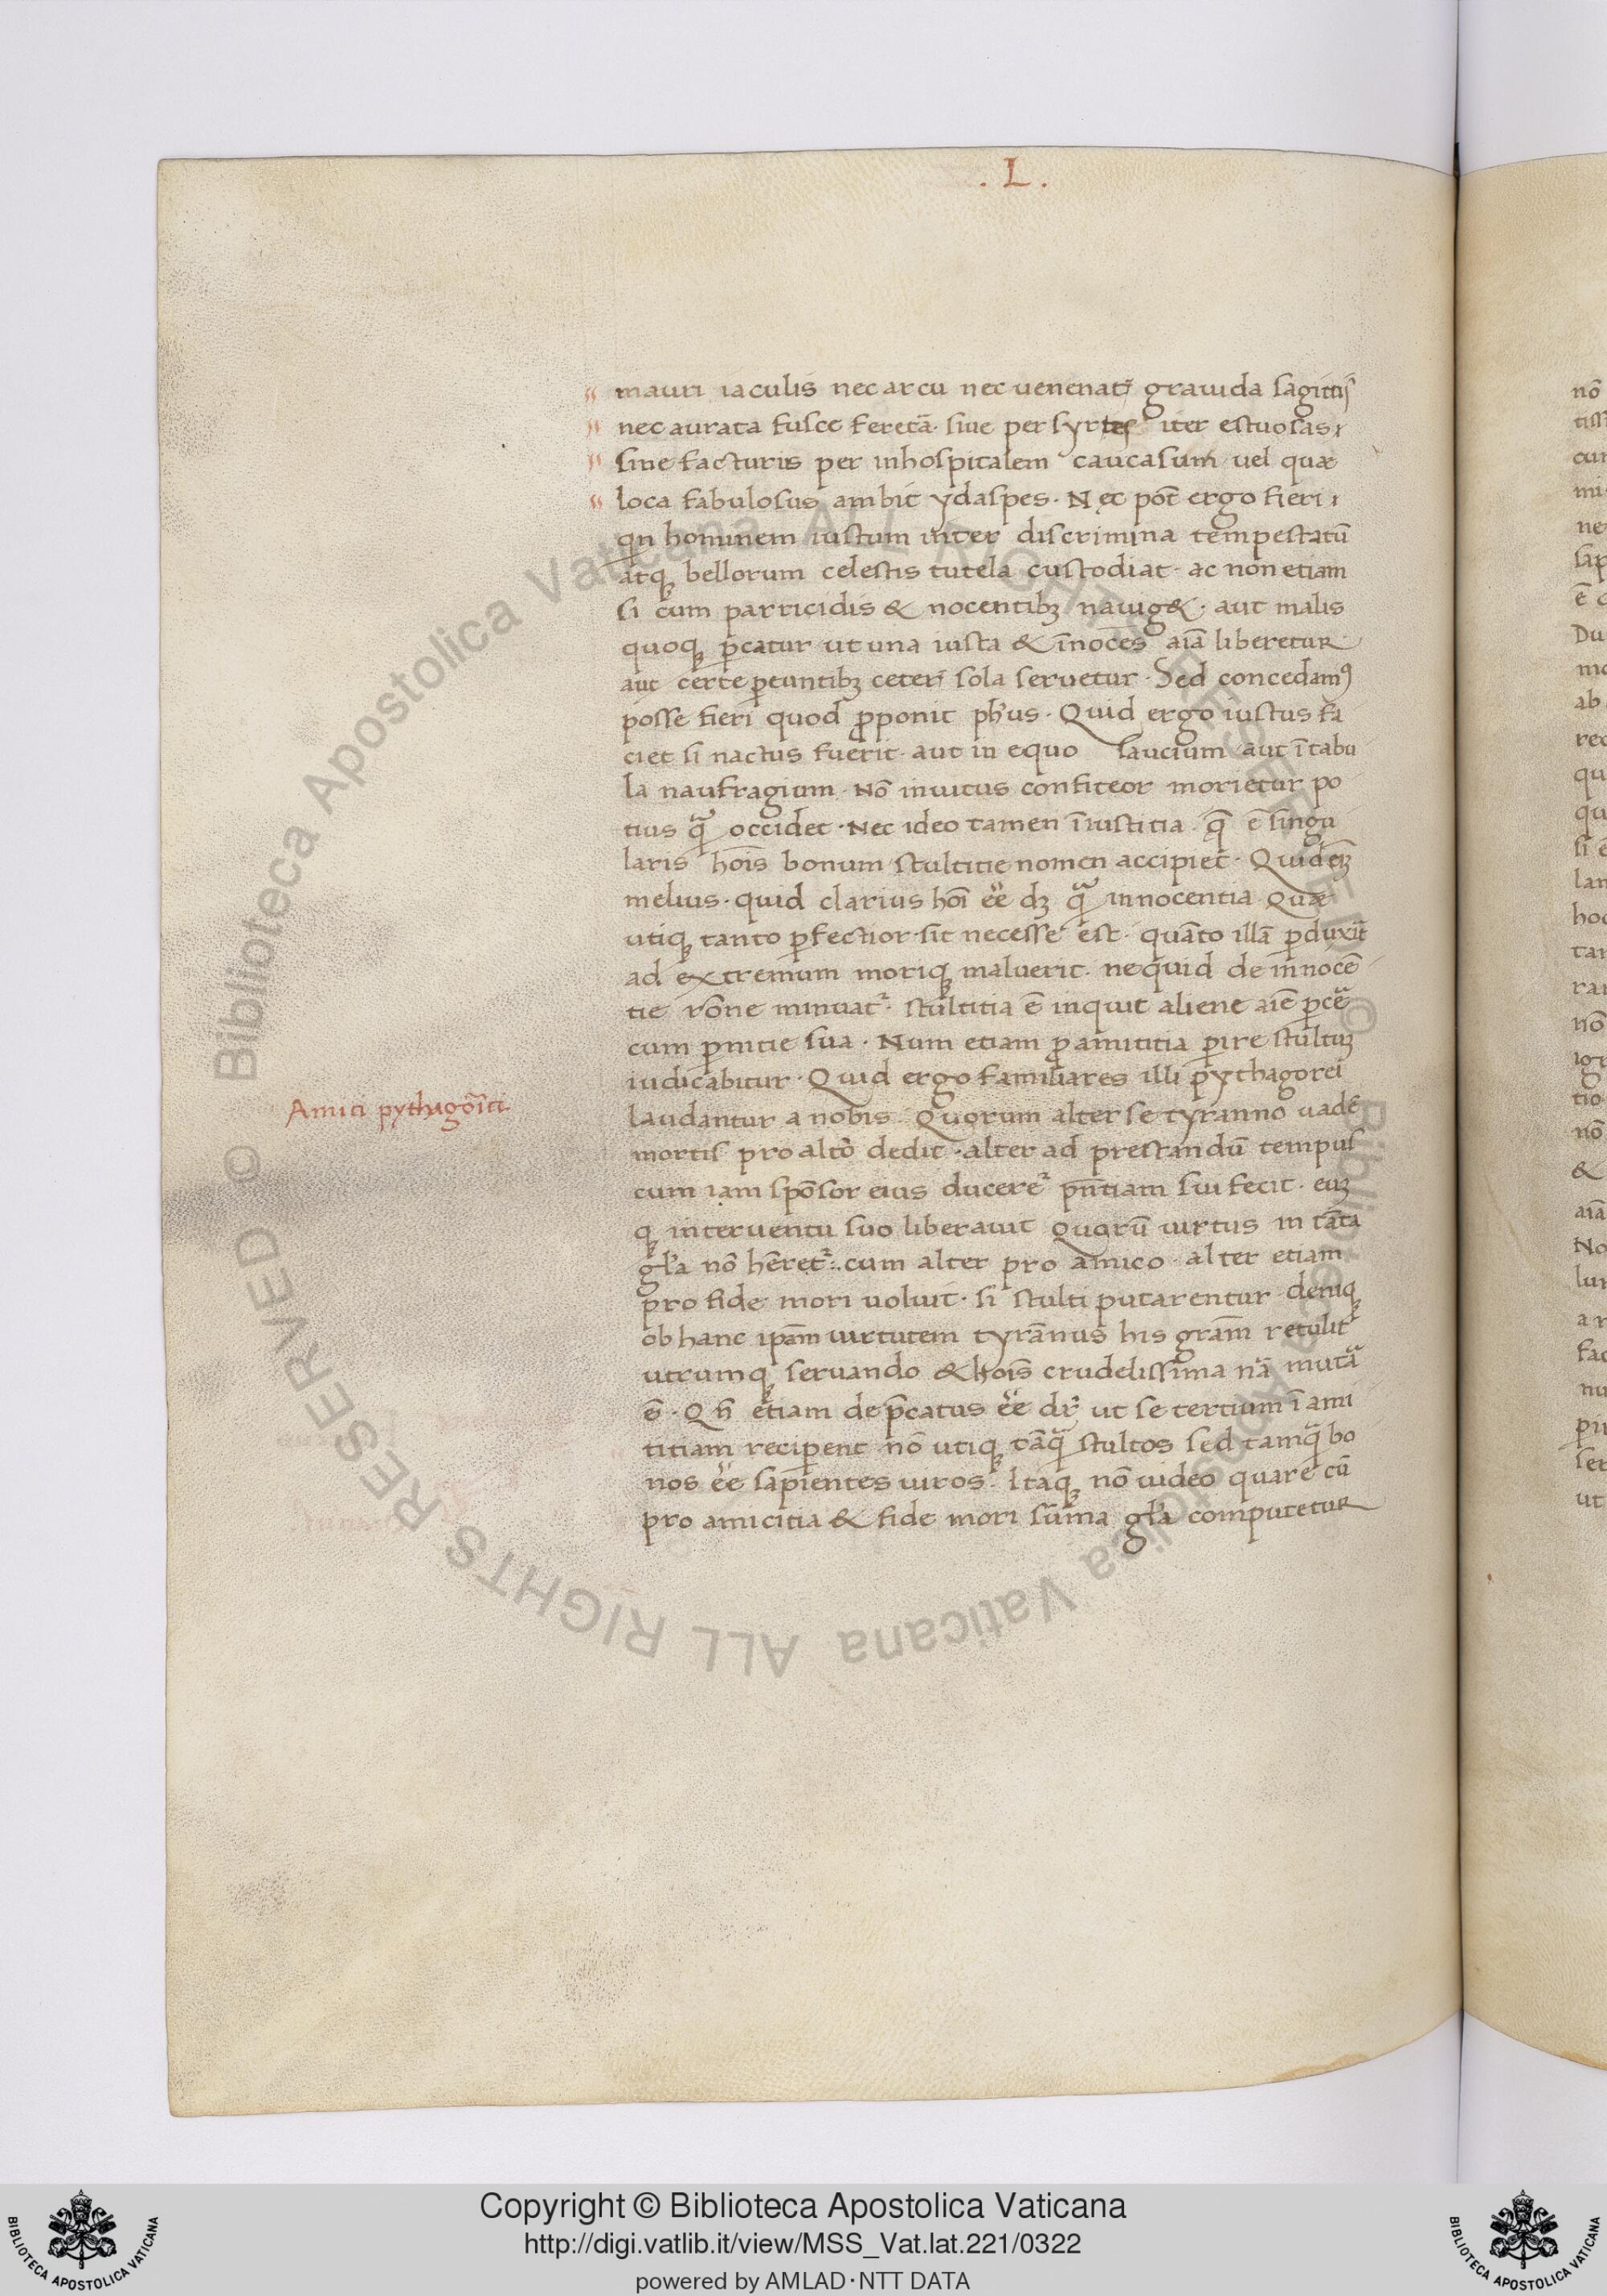 . L .
mauri iaculis nec arcu nec uenenat᷑ grauida sagittij᷑
nec aurata fusce feretā· siue per syrtes iter estuosas
siue facturis per inhospitalem caucasum uel quæ
loca fabulosus ambit ydaspes· Nec pōt ergo fieri
qͥn hominem iustum inter discrimina tempestatū
atqꝫ bellorum celestis tutela custodiat· ac non etiam
si cum parricidis & nocentibꝫ nauig&· aut malis
quoqꝫ ꝑcatur ut una iusta & īnocēs aīa liberetur
aut certe ꝑeuntibꝫ ceteri᷑ sola seruetur· Sed concedamꝰ
posse fieri quod ꝓponit ph̄us· Quid ergo iustus fa
ciet si nactus fuerit· aut in equo saucium aut ī tabu
la naufragium· Nō inuitus confiteor morietur po
tius qᷓ occidet· Nec ideo tamen īiustitia· q̄ ē singu
laris hoīs bonum stultitie nomen accipiet· Quid eīꝫ
melius· quid clarius hoī ēē dꝫ qᷓ innocentia Quæ
utiqꝫ tanto ꝑfectior sit necesse est· quāto illā ꝑduxīt
ad extremum moriqꝫ maluerit· nequid de innocē
tie rōne minuat᷑· stultitia ē inquit aliene aīe ꝑcē
cum ꝑnitie sua· Num etiam ꝓ amititia ꝑire stultuꝫ
iudicabitur· Quid ergo familiares illi pythagorei
Amici pythagorīci
laudantur a nobis Quorum alter se tyranno uadē
mortis pro altō dedit· alter ad prestandū tempus
cum iam spōsor eius ducere᷑ pn̄tiam sui fecit· euꝫ
qꝫ interuentu suo liberauit Quorū uirtus in tāta
gl̄a nō hēret᷑: cum alter pro amico· alter etiam
pro fide mori uoluit· si stulti putarentur deniqꝫ
ob hanc ipām uirtutem tyrānus his grām retulit
utrumqꝫ seruando & hoīs crudelissima nā mutā
ē· Qn̄ etiam dep̄catus ēē dr᷑ ut se tertium ī ami
titiam reciperent nō utiqꝫ tāqᷓ stultos sed tamqᷓ bo
nos ēē sapientes uiros· Itaqꝫ nō uideo quare cū
pro amicitia & fide mori sūma gl̄a computetur
nō
tiss
cur
mi
ne
sap
ē c
Du
mo
ab
rec
qu
qu
si ē
lan
hoc
tan
rar
nō
igr
tio
nō
&
aīa
No
lun
a n
fac
nu
ser
ut
© Biblioteca Apostolica Vaticana ALL RIGHTS RESERVED © Biblioteca Apostolica Vaticana ALL RIGHTS RESERVED
BIBLIOTECA APOSTOLICA VATICANA
Copyright © Biblioteca Apostolica Vaticana
http://digi.vatlib.it/view/MSS_Vat.lat.221/0322
powered by AMLAD·NTT DATA
BIBLIOTECA APOSTOLICA VATICANA